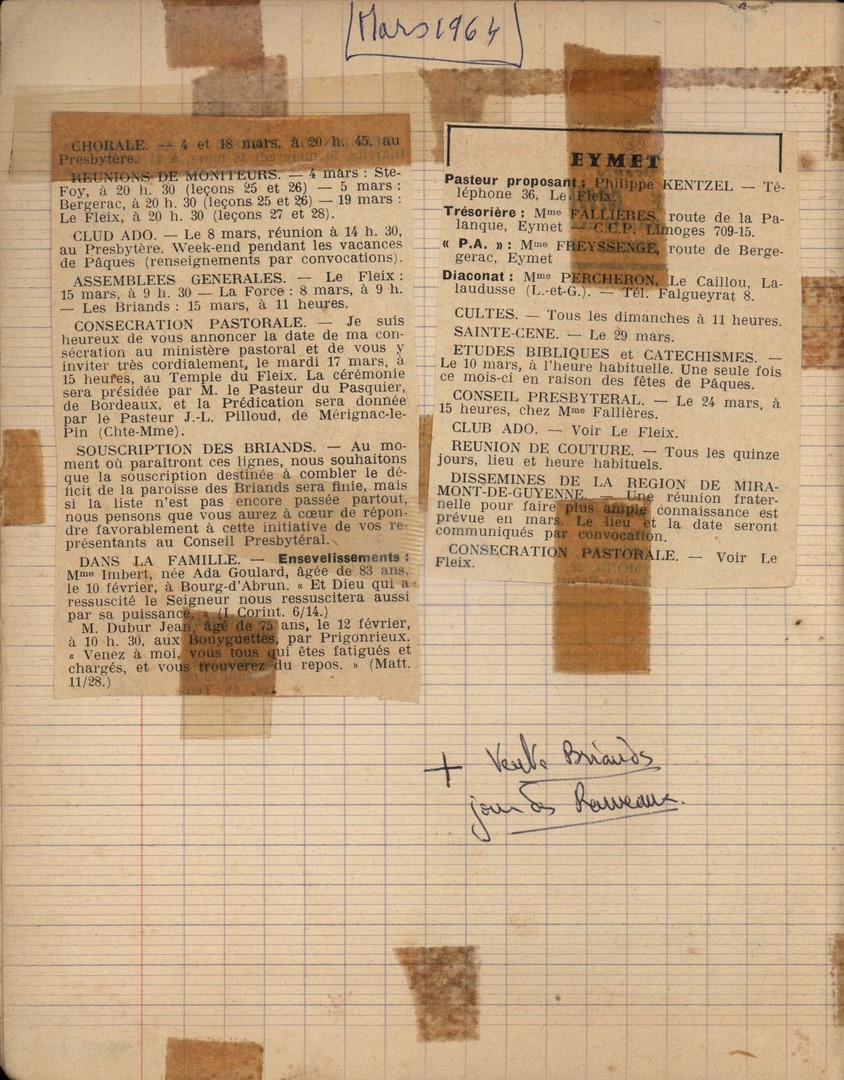 [Mars 1964]
CHORALE. — 4 et 18 mars, à 20 h. 45, au
Presbytère.
REUNIONS DE MONITEURS. — 4 mars : Ste-
Foy, à 20 h. 30 (leçons 25 et 26) — 5 mars :
Bergerac, à 20 h. 30 (leçons 25 et 26) — 19 mars :
Le Fleix, à 20 h. 30 (leçons 27 et 28).
CLUD ADO. — Le 8 mars, réunion à 14 h. 30,
au Presbytère. Week-end pendant les vacances
de Pâques (renseignements par convocations).
ASSEMBLEES GENERALES. — Le Fleix :
15 mars, à 9 h. 30 — La Force : 8 mars, à 9 h.
— Les Briands : 15 mars, à 11 heures.
CONSECRATION PASTORALE. — Je suis
heureux de vous annoncer la date de ma con-
sécration au ministère pastoral et de vous y
inviter très cordialement, le mardi 17 mars, à
15 heures, au Temple du Fleix. La cérémonie
sera présidée par M. le Pasteur du Pasquier,
de Bordeaux, et la Prédication sera donnée
par le Pasteur J.-L. Pilloud, de Mérignac-le-
Pin (Chte-Mme).
SOUSCRIPTION DES BRIANDS. — Au mo-
ment où paraîtront ces lignes, nous souhaitons
que la souscription destinée à combler le dé-
ficit de la paroisse des Briands sera finie, mais
si la liste n'est pas encore passée partout,
nous pensons que vous aurez à cœur de répon-
dre favorablement à cette initiative de vos re-
présentants au Conseil Presbytéral.
DANS LA FAMILLE. — Ensevelissements :
Mme Imbert, née Ada Goulard, âgée de 83 ans,
le 10 février, à Bourg-d'Abrun. « Et Dieu qui a
ressuscité le Seigneur nous ressuscitera aussi
par sa puissance. » (I Corint. 6/14.)
M. Dubur Jean, âgé de 75 ans, le 12 février,
à 10 h. 30, aux Bouyguettes, par Prigonrieux.
« Venez à moi, vous tous qui êtes fatigués et
chargés, et vous trouverez du repos. » (Matt.
11/28.)
EYMET
Pasteur proposant : Philippe KENTZEL — Té-
léphone 36, Le Fleix.
Trésorière : Mme FALLIERES, route de la Pa-
lanque, Eymet — C.C.P. Limoges 709-15.
« P.A. » : Mme FREYSSENGE, route de Berge-
gerac, Eymet
Diaconat : Mme PERCHERON, Le Caillou, La-
laudusse (L.-et-G.). — Tél. Falgueyrat 8.
CULTES. — Tous les dimanches à 11 heures.
SAINTE-CENE. — Le 29 mars.
ETUDES BIBLIQUES et CATECHISMES. —
Le 10 mars, à l'heure habituelle. Une seule fois
ce mois-ci en raison des fêtes de Pâques.
CONSEIL PRESBYTERAL. — Le 24 mars, à
15 heures, chez Mme Fallières.
CLUB ADO. — Voir Le Fleix.
REUNION DE COUTURE. — Tous les quinze
jours, lieu et heure habituels.
DISSEMINES DE LA REGION DE MIRA-
MONT-DE-GUYENNE. — Une réunion frater-
nelle pour faire plus ample connaissance est
prévue en mars. Le lieu et la date seront
communiqués par convocation.
CONSECRATION PASTORALE. — Voir Le
Fleix.
+ Vente Briands
jour des Rameaux.